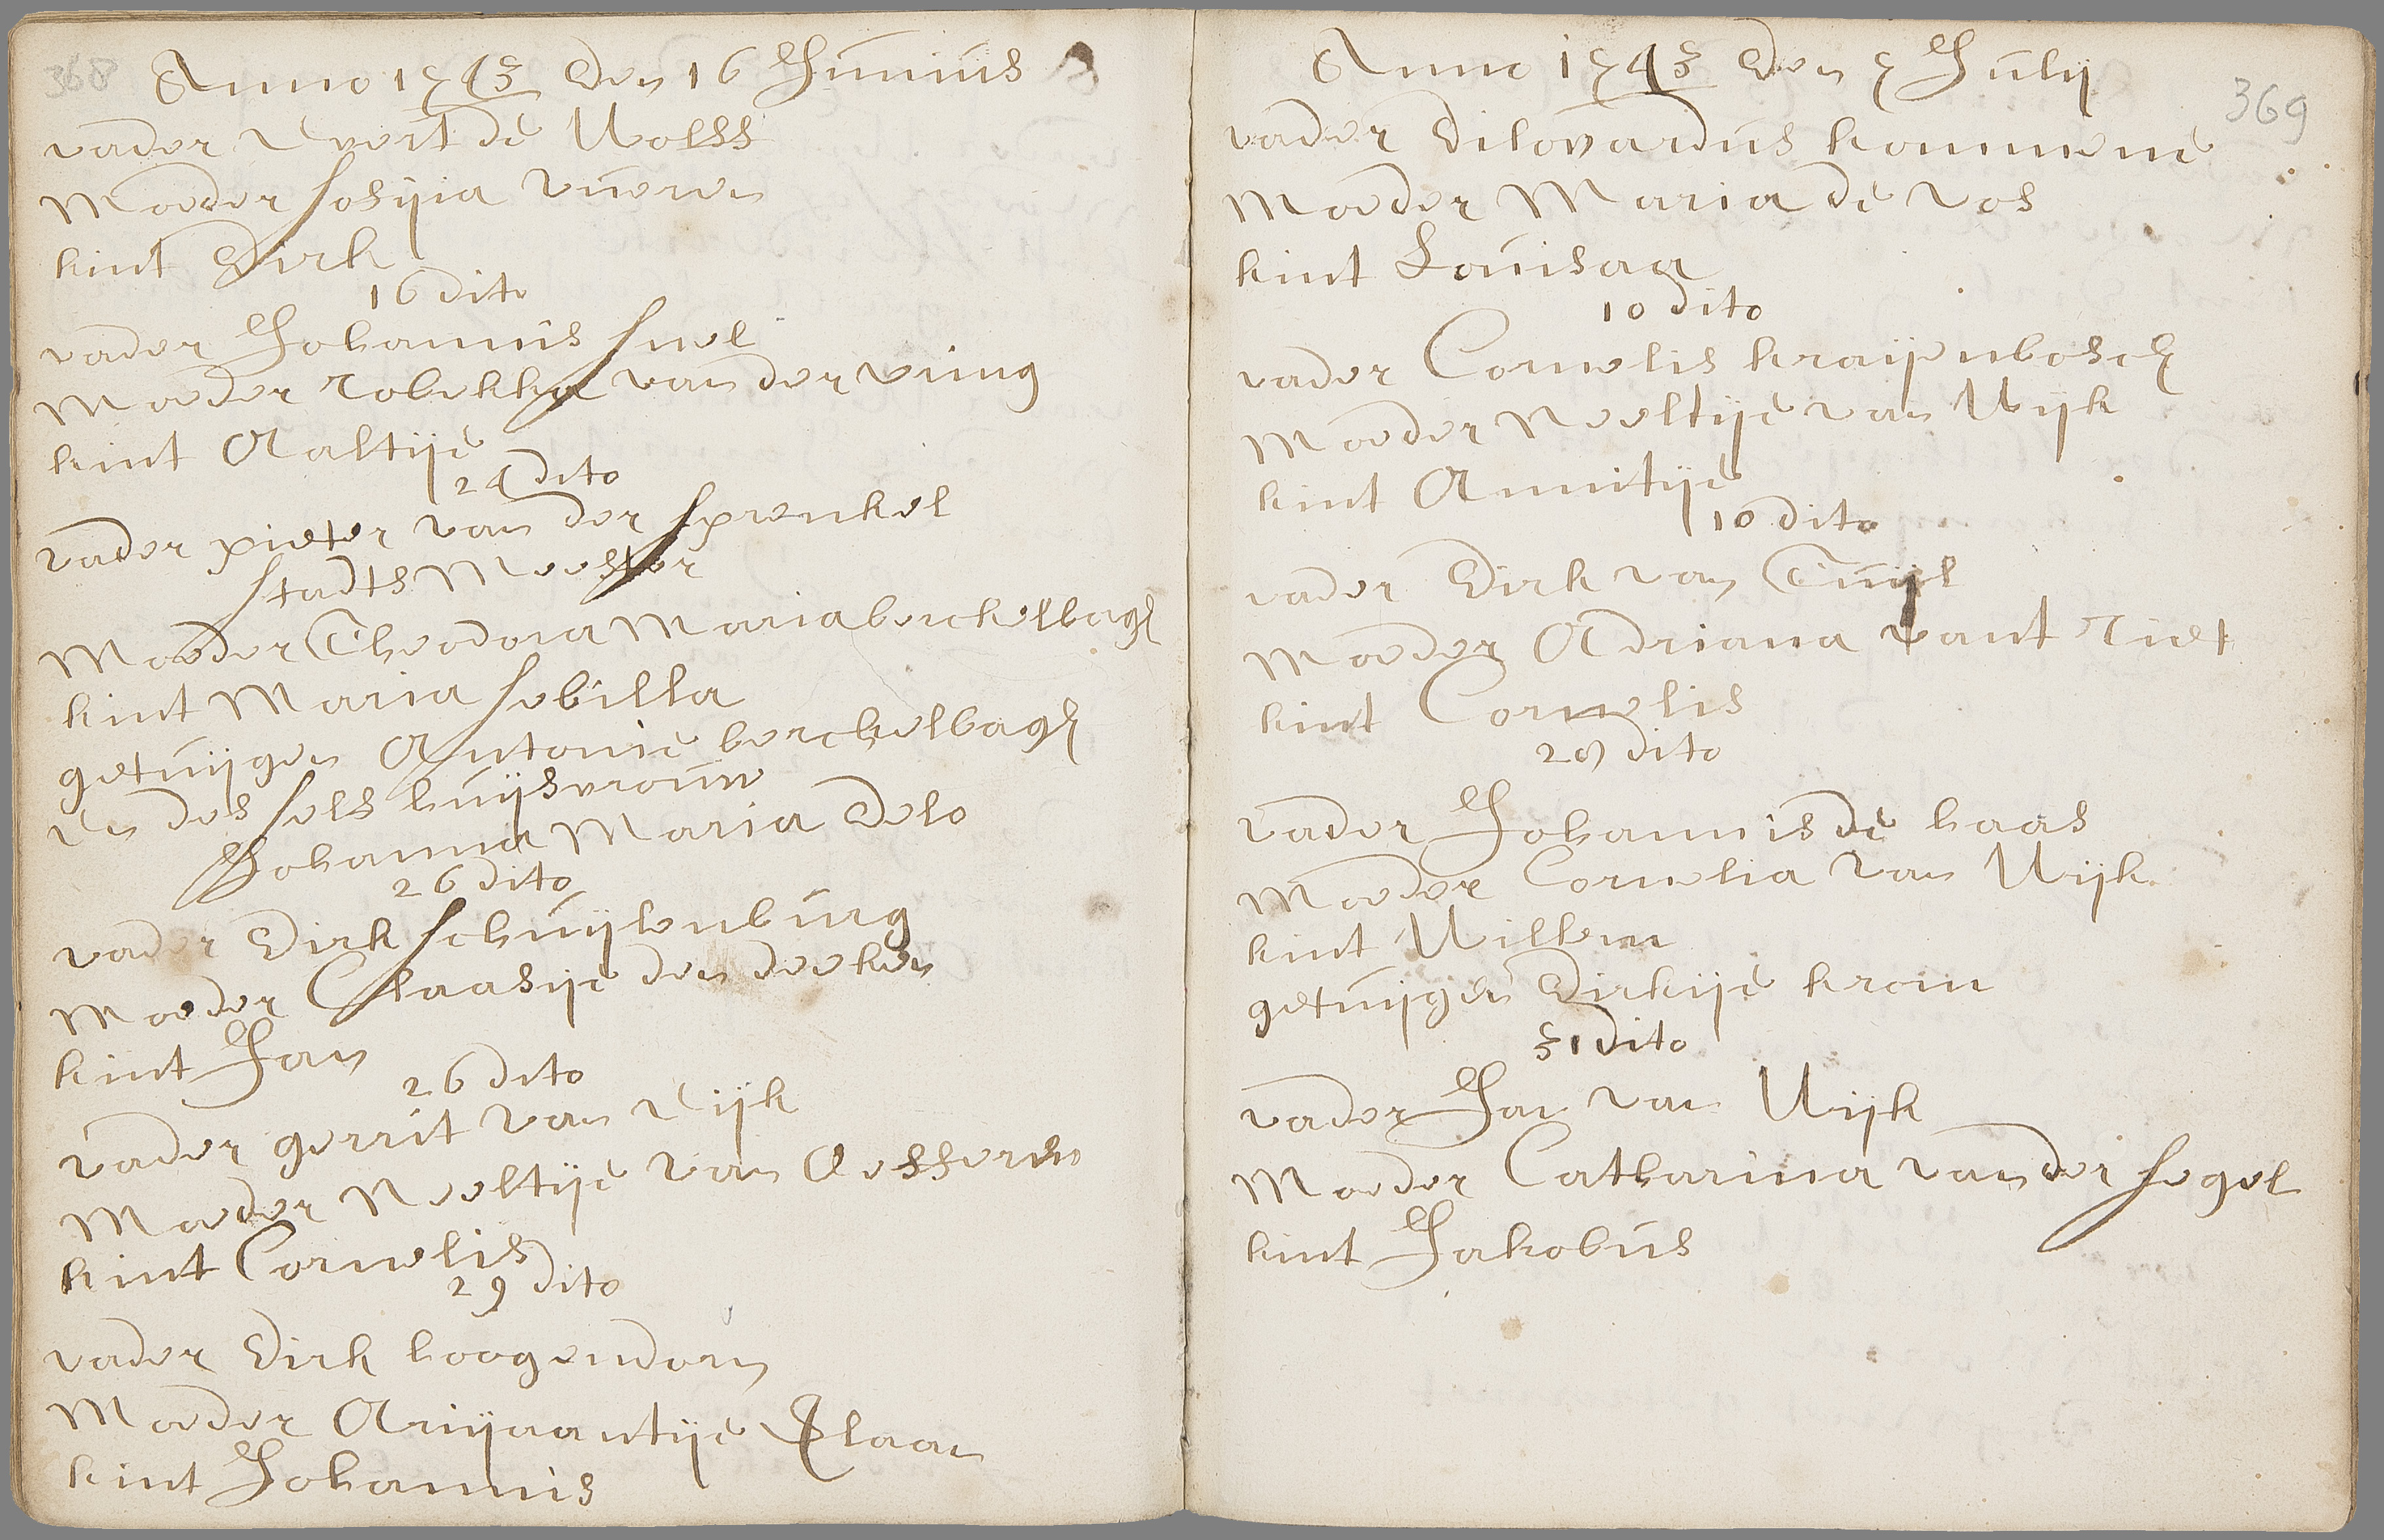 368
Anno 1743 Den 16 Junius
vader Evert de Wolff
Moeder Sosijia vueren
kint Dirk
16 dito
vader Johannis Snel
Moeder rebekka van der vring
kint Aaltije
24 dito
vader pieter van der Sprenkel
Stadts Meester
Moeder Theodora Maria berchelbagh
kint Maria Sebilla
getuijgen Antonie berchelbagh
en des selfs huijsvrouw
Johanna Maria Delo
26 dito
vader Dirk Schuijlenburg
Moeder Claasije den deeken
kint Jan
26 dito
vader gerrit van Eijk
Moeder Neeltije van Asseren
kint Cornelis
29 dito
vader Dirk hoogendorn
Moeder Arijaantije Blaan
kint Johannis
369
Anno 1743 Den 7 Julij
vader Dilovardus kommene
Moeder Maria de vos
kint Louisaa
10 dito
vader Cornelis kraijenbosch
Moeder Neeltije van Wijk
kint Annitije
10 dito
vader Dirk van Tuijl
Moeder Adriana vant riet
kint Cornelis
28 dito
vader Johannis de haas
Moeder Cornelia van Wijk
kint Willem
getuijgen Dirkije krom
31 dito
vader Jan van Wijk
Moeder Catharina van der Segel
kint Jakobus